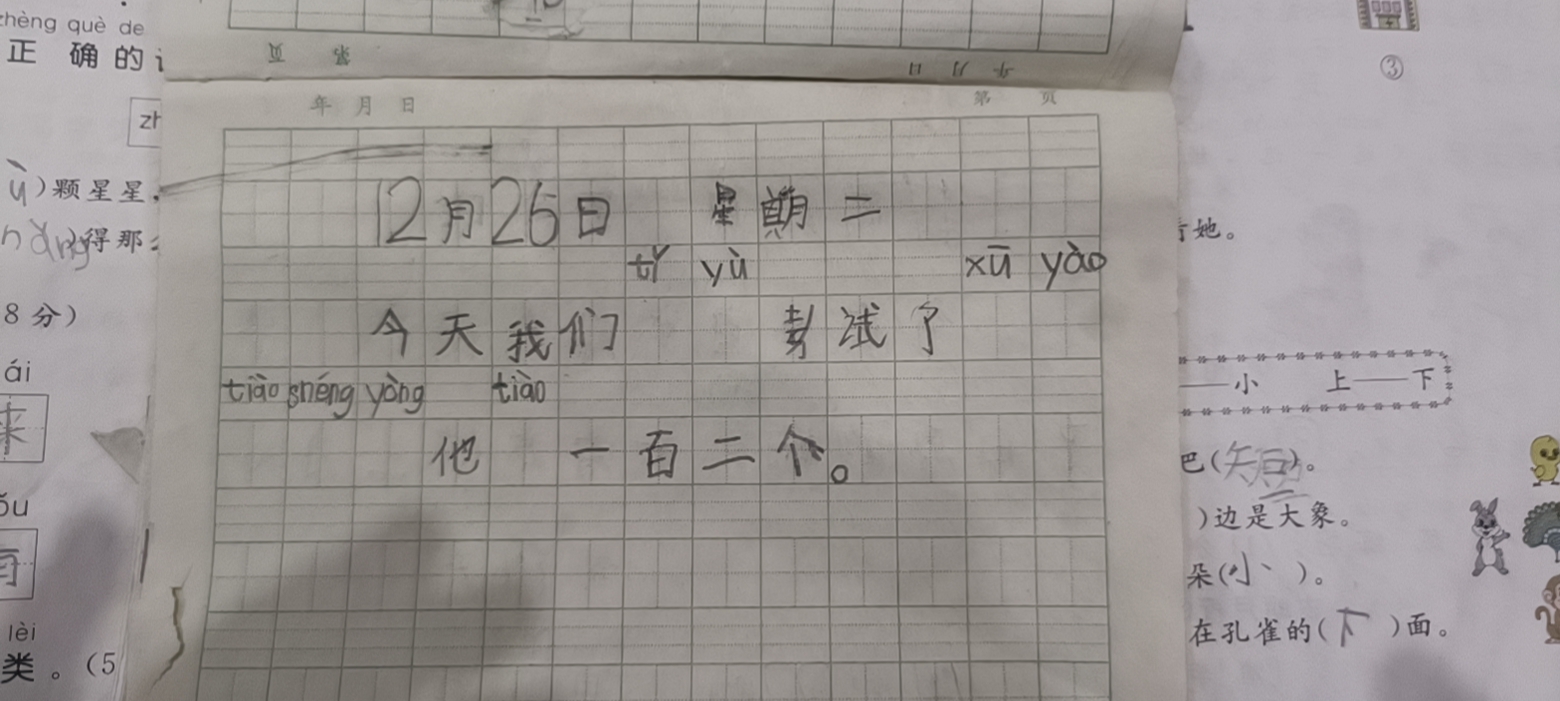 zhèng què de
正 确 的
页 第
日 月 年
③
年 月 日
第 页
zh
ù）颗星星，
12月26日 星期二
得那
她。
tǐ yù xū yào
8 分）
今天我们 考试了
ái
小 上——下
tiào shéng yòng tiào
来
他 一百二个。
巴（短）。
）边是大象。
朵（小 ）。
lèi
在孔雀的（下 ）面。
类 。（5